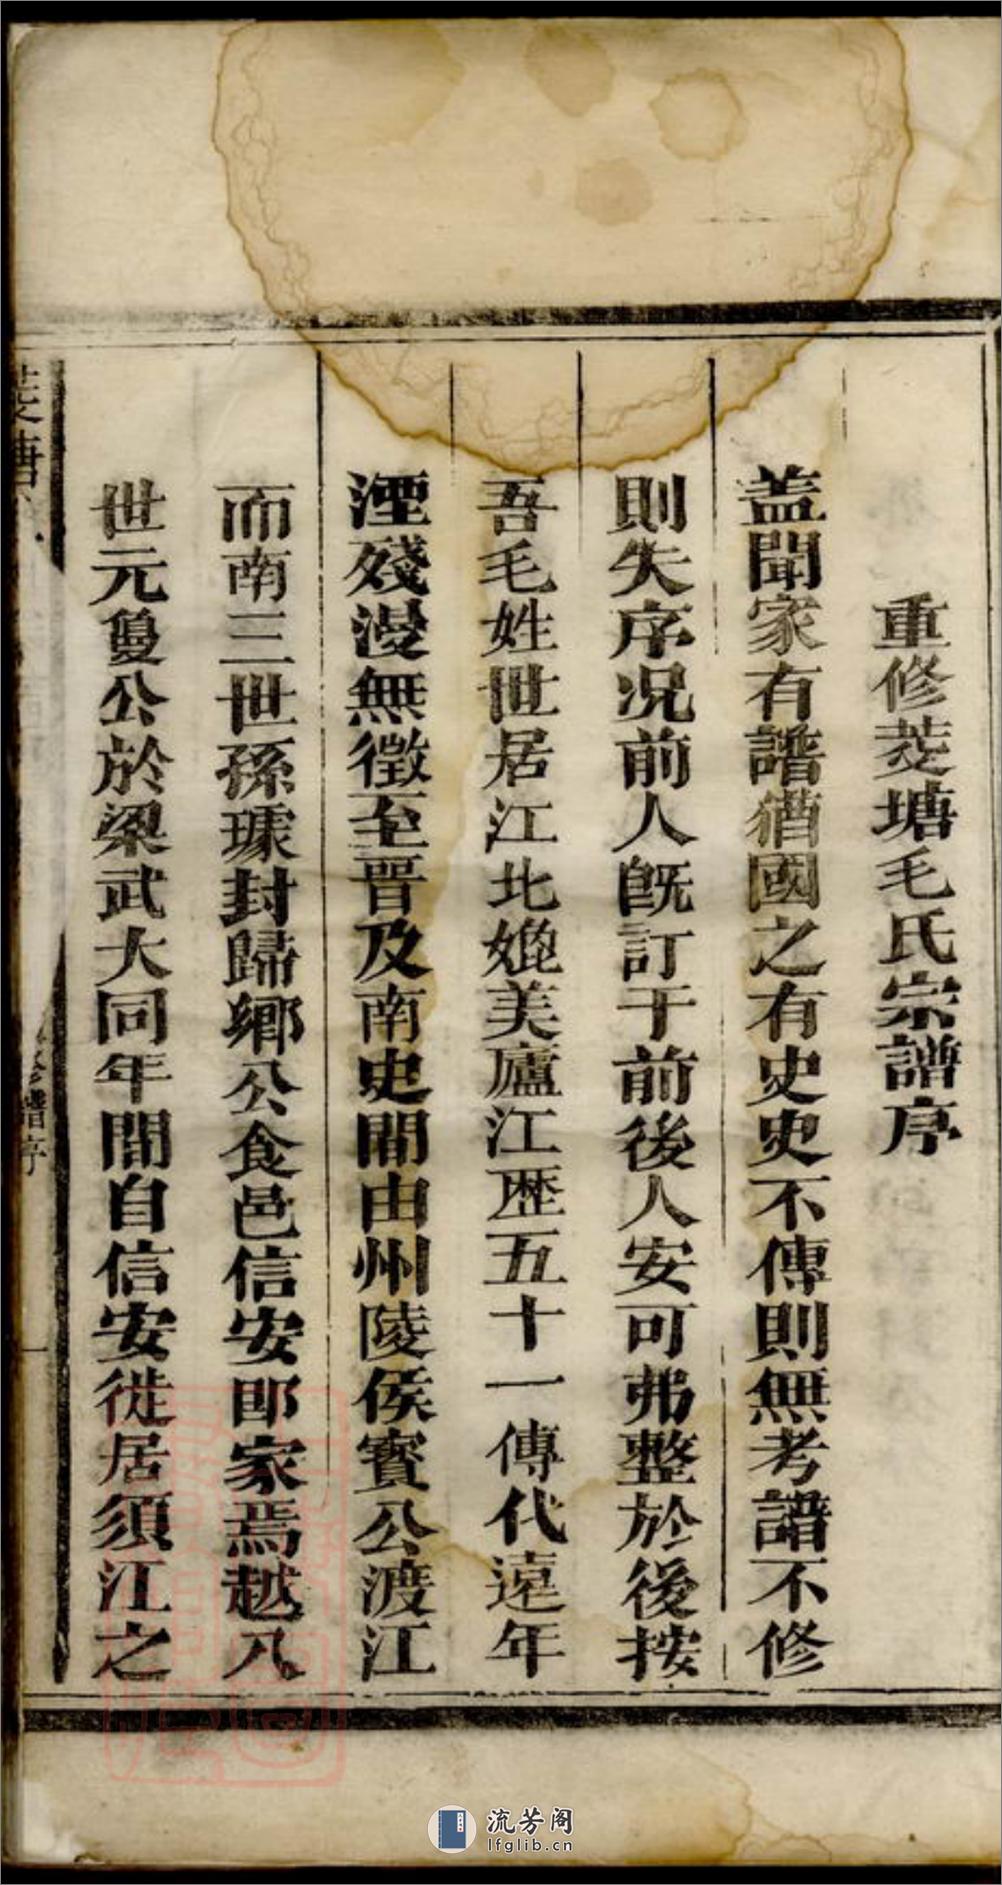 重修茭塘毛氏宗譜序
盖聞家有譜猶國之有史史不傳則無考譜不修
則失序况前人既訂于前後人安可弗整於後按
吾毛姓世居江北媲美廬江歷五十一傳代遠年
湮殘漫無徵至晋及南史間由州陵侯寳公渡江
而南三世孫璩封歸鄉公食邑信安即家焉越八
世元㕠公於梁武大同年間自信安徙居須江之
茭塘
修譜序
一
流芳阁
lfglib.cn